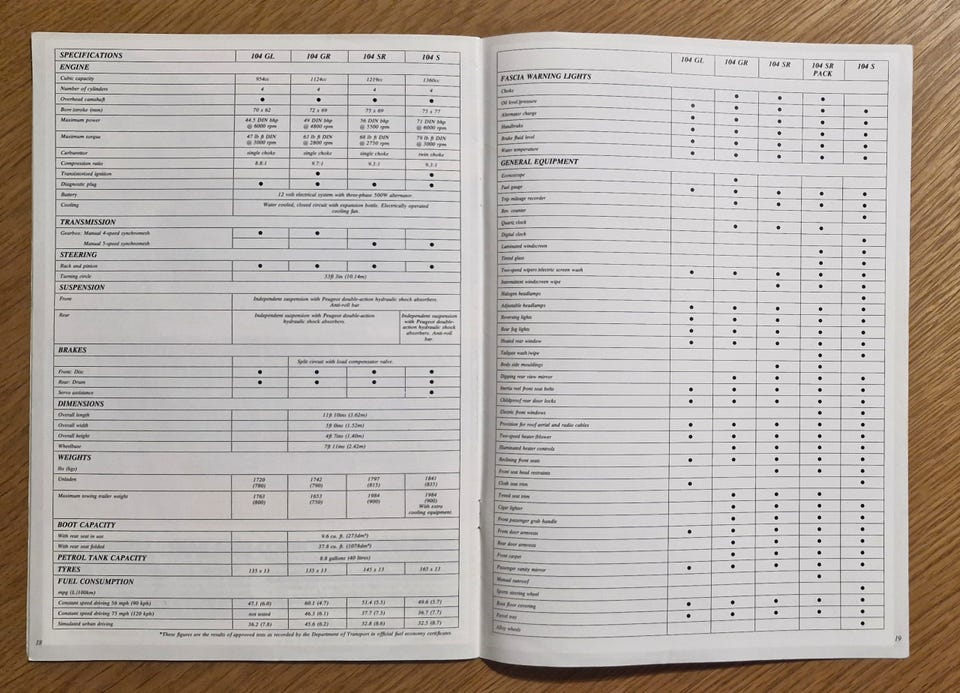 SPECIFICATIONS 104 GL 104 GR 104 SR 104 S
ENGINE
Cubic capacity 954cc 1124cc 1219cc 1360cc
Number of cylinders 4 4 4 4
Overhead camshaft ● ● ● ●
Bore/stroke (mm) 70 x 62 72 x 69 75 x 69 75 x 77
Maximum power 44.5 DIN bhp 49 DIN bhp 56 DIN bhp 71 DIN bhp
@ 6000 rpm @ 4800 rpm @ 5500 rpm @ 6000 rpm
Maximum torque 47 lb ft DIN 63 lb ft DIN 68 lb ft DIN 79 lb ft DIN
@ 3000 rpm @ 2800 rpm @ 2750 rpm @ 3000 rpm
Carburettor single choke single choke single choke twin choke
Compression ratio 8.8:1 9.7:1 9.3:1 9.3:1
Transistorised ignition ● ●
Diagnostic plug ● ● ● ●
Battery 12 volt electrical system with three-phase 500W alternator.
Cooling Water cooled, closed circuit with expansion bottle. Electrically operated
cooling fan.
TRANSMISSION
Gearbox: Manual 4-speed synchromesh ● ●
Manual 5-speed synchromesh ● ●
STEERING
Rack and pinion ● ● ● ●
Turning circle 33ft 3in (10.14m)
SUSPENSION
Front Independent suspension with Peugeot double-action hydraulic shock absorbers.
Anti-roll bar.
Rear Independent suspension with Peugeot double-action Independent suspension
hydraulic shock absorbers. with Peugeot double-
action hydraulic shock
absorbers. Anti-roll
bar.
BRAKES
Split circuit with load compensator valve.
Front: Disc ● ● ● ●
Rear: Drum ● ● ● ●
Servo assistance ●
DIMENSIONS
Overall length 11ft 10ins (3.62m)
Overall width 5ft 0ins (1.52m)
Overall height 4ft 7ins (1.40m)
Wheelbase 7ft 11ins (2.42m)
WEIGHTS
lbs (kgs)
Unladen 1720 1742 1797 1841
(780) (790) (815) (835)
Maximum towing trailer weight 1763 1653 1984 1984
(800) (750) (900) (900)
With extra
cooling equipment.
BOOT CAPACITY
With rear seat in use 9.6 cu. ft.
With rear seat folded 37.8 cu. ft.
PETROL TANK CAPACITY 8.8 gallons (40 litres)
TYRES 135 x 13 135 x 13 145 x 13 165 x 13
FUEL CONSUMPTION
mpg (L/100km)
Constant speed driving 56 mph (90 kph) 47.1 (6.0) 60.1 (4.7) 51.4 (5.5) 49.6 (5.7)
Constant speed driving 75 mph (120 kph) not tested 46.3 (6.1) 37.7 (7.5) 36.7 (7.7)
Simulated urban driving 36.2 (7.8) 45.6 (6.2) 32.8 (8.6) 32.5 (8.7)
*These figures are the results of approved tests as recorded by the Department of Transport in official fuel economy certificates
18
104 GL 104 GR 104 SR 104 SR 104 S
PACK
FASCIA WARNING LIGHTS
Choke
Oil level/pressure
Alternator charge
Handbrake
Brake fluid level
Water temperature
GENERAL EQUIPMENT
Econoscope
Fuel gauge
Trip mileage recorder
Rev. counter
Quartz clock
Digital clock
Laminated windscreen
Tinted glass
Two-speed wipers/electric screen wash
Intermittent windscreen wipe
Halogen headlamps
Adjustable headlamps
Reversing lights
Rear fog lights
Heated rear window
Tailgate wash/wipe
Body side mouldings
Dipping rear view mirror
Inertia reel front seat belts
Childproof rear door locks
Electric front windows
Provision for roof aerial and radio cables
Two-speed heater/blower
Illuminated heater controls
Reclining front seats
Front seat head restraints
Cloth seat trim
Tweed seat trim
Cigar lighter
Front passenger grab handle
Front door armrests
Rear door armrests
Front carpet
Passenger vanity mirror
Manual sunroof
Sports steering wheel
Boot floor covering
Parcel tray
Alloy wheels
19